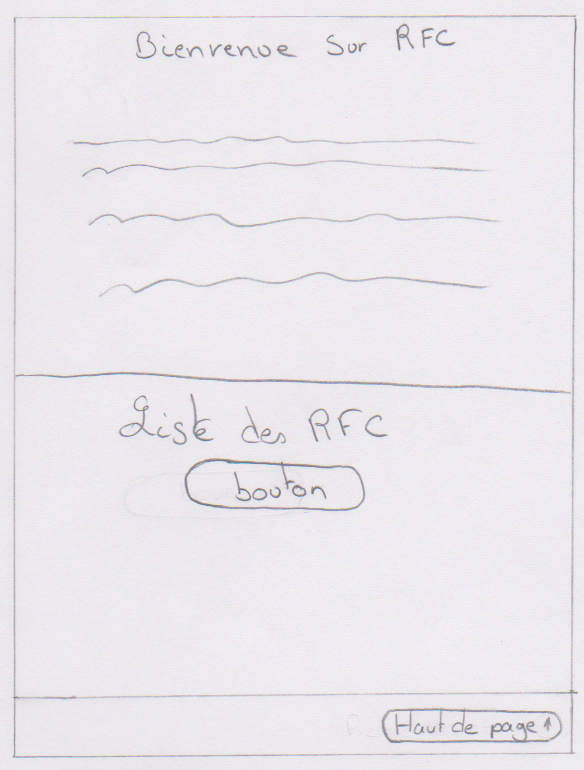 Bienvenue sur RFC
Liste des RFC
bouton
Haut de page ↑